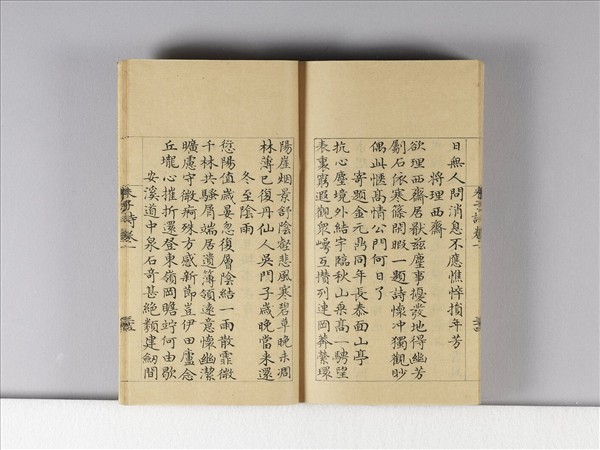 日無人問消息不應憔悴損年芳
將理西齋
欲理西齋居獸茲塵事擾發地得幽芳
劚石依寒篠閑暇一題詩懷冲獨觀眇
偶此愜高情公門何日了
寄題金元鼎同年長泰面山亭
抗心塵境外結宇臨秋山乘高一騁望
表裏窮遐觀衆嶠互攢列連岡莽縈環
陽崖烟景舒陰壑悲風寒碧草晚未凋
林薄已復丹仙人吳門子歲晚當来還
冬至陰雨
愆陽值歲晏忽復層陰結一雨散霏微
千林共騷屑端居遺簿領遠意懷幽潔
曠慮守微痾殊方感新節豈伊田廬念
丘壠心摧折還登東嶺岡瞻竚何由歇
安溪道中泉石奇甚絕類建劒間